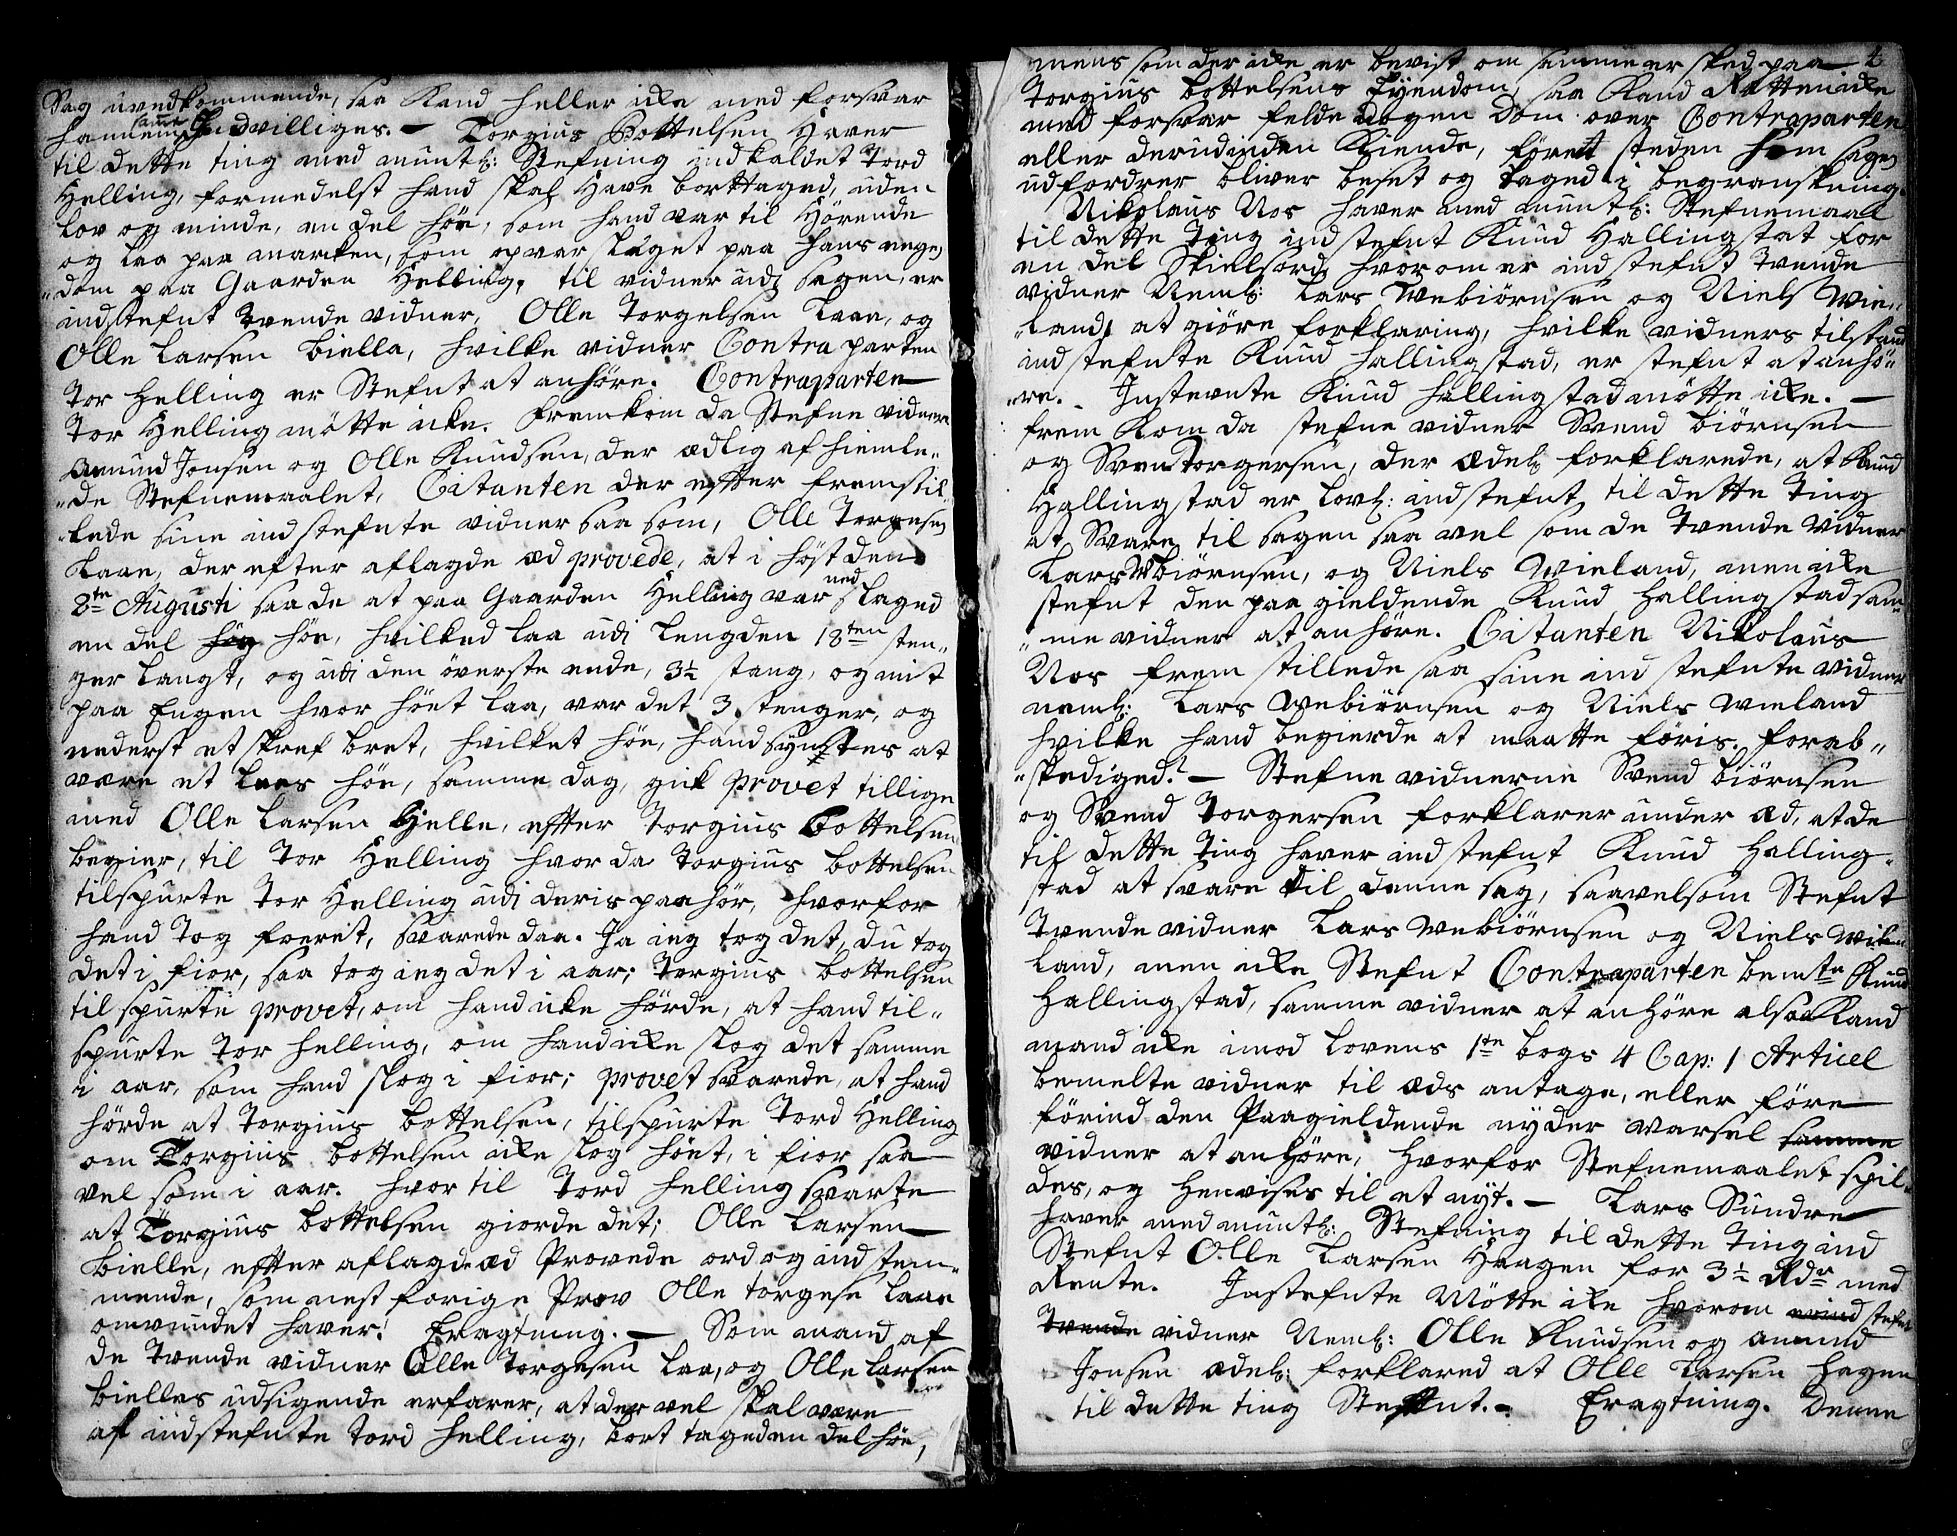 Sag uvedkommende, saa Kand heller icke med forsvar
hannem samme indvilliges. — Torgius Bottelsen Haver
til dette ting med muntl: Stefning indkaldet Tord
Helling, formedelst hand skal Have borttaged, uden
lov og minde, en del höe, som hand var til Hörende
og laa paa marcken, som opvar slaget paa hans eegen„
„dom paa Gaarden Helling, til vidner udj sagen, er
indstefnt tvende vidner, Olle Torgelsen Laae, og
Olle Larsen Biella, hvilke vidner Contraparten
Tor Helling er Stefnt at anhöre. Contraparten
Tor Helling mötte icke. Fremkom da Stefne vidnerne
Amund Jonsen og Olle Knudsen, der ædlig af hiemle„
„de Stefnemaalet, Citanten der effter fremstil„
„lede sine indstefnte vidner saa som, Olle Torgesen
Laae, der efter aflagde æd provede, at i höst den
8te Augusti saa de at paa Gaarden Helling var ned slaged
en del höe, hvilked laa udi lengden 18ten sten„
ger langt, og udi den överste ende, 3½ stang, og mit
paa Engen hvor höet laa, var det 3 stenger, og
nederst et skref bret, hvilket höe, hand syntes at
være et lees höe, samme dag, gik provet tillige
med Olle Larsen Hielle, effter Torgius Bottelsens
begier, til Tor Helling hvor da Torgius bottelsen
tilspurte Tor Helling udi deris paahör, hvorfor
hand tog foeret, svarede daa. Ja ieg tog det, du tog
det i fior, saa tog ieg det i aar; Torgius bottelsen
til spurte provet, om hand icke hörde, at hand til„
spurte Tor Helling, om hand icke slog det samme
i aar, som hand slog i fior; provet svarede, at hand
hörde at Torgius bottelsen, tilspurte Tord Helling
om Torgius bottelsen icke slog höet, i fior saa
vel som i aar. hvor til Tord Helling svarte
at Torgius bottelsen giorde det; Olle Larsen
Bielle, effter aflagde æd Provede ord og ind stem„
mende, som nest forige Prov Olle torgese Laae
omvundet haver! Eragtning. — Som mand af
de tvende vidner Olle Torgesen Laa, og Olle Larsen
bielles udsigende erfarer, at der vel skal være
af indstefnte Tord Helling, bort taged en del höe,
mens som der icke er bevist om samme er sked paa
Torgius bottelsens Eyendom, saa Kand Retten icke
med forsvar felde nogen Dom over Contraparten
eller derudinden Kiende, förett steden som sagen
udfordrer bliver beset og taged i begranskning.
Nikolaus Nos haver med muntl: Stefnemaal
til dette Ting indstefnt Knud Hallingstat for
en del Skielsord, hvor om er indstefnt tvende
vidner Neml: Lars Webiörnsen og Niels Wie„
„land, at giöre forklaring, hvilke vidners tilstand
indstefnte Knud Hallingstad, er stefnt at anhö„
„re. Instevnte Knud Hallingstad mötte icke. —
frem Kom da stefne vidner Svend biörnsen
og Sven Torgersen, der ædel: forklarede, at Knud
Hallingstad er lovl: indstefnt til dette Ting
at Svare til sagen saa vel som de tvende vidner
Lars Wbiörnsen, og Niels Wieland, men icke
stefnt den paa gieldende Knud Hallingstad sam„
„me vidner at anhöre. Citanten Nikolaus
Nos frem stillede saa sine indstefnte vidner
neml: Lars Webiörnsen og Niels Wieland
hvilke hand begierde at maatte föris. forab„
„skediged. — Stefne vidnerne Svend biörnsen
og Svend Torgersen forklarer under æd, at de
til dette Ting haver indstefnt Knud Halling„
stad at svare til denne sag, saavelsom Stefnt
tvende vidner Lars Webiörnsen og Niels Wie
land, men icke Stefnt Contraparten bemte Knud
Hallingstad, samme vidner at anhöre alsaa Kand
mand icke imod Lovens 1te bogs 4 Cap: 1 Articel
bemelte vidner til æds antage, eller före
förind den Paagieldende nyder varsel samme
vidner at anhöre, hvorfor Stefnemaalet spil„
des, og henvises til et nyt. — Lars Sundre
haver med muntl: Stefning til dette Ting ind
Stefnt Olle Larsen Haagen for 3½ Rdr med
Rente. Instefnte Mötte icke hvorom stefne
Tvende vidner Neml: Olle Knudsen og Amund
Jonsen ædel: forklared at Olle Larsen Hagen
til dette ting Steffnt. — Eragtning. Denne